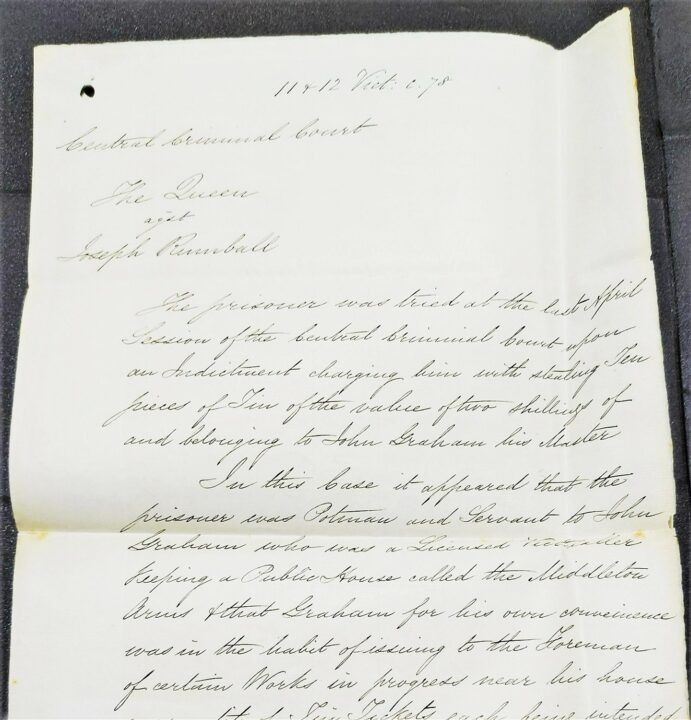 11 & 12 Vict: c. 78
Central Criminal Court
The Queen
agst
Joseph Rumball
The prisoner was tried at the last April
Session of the Central Criminal Court upon
an Indictment charging him with stealing Ten
pieces of Tin of the value of two shillings of
and belonging to John Graham his Master
In this Case it appeared that the
prisoner was Potman and Servant to John
Graham who was a Licensed Victualler
keeping a Public House called the Middleton
Arms & that Graham for his own convenience
was in the habit of issuing to the Foreman
of certain Works in progress near his house
of Tin Tickets each being intended